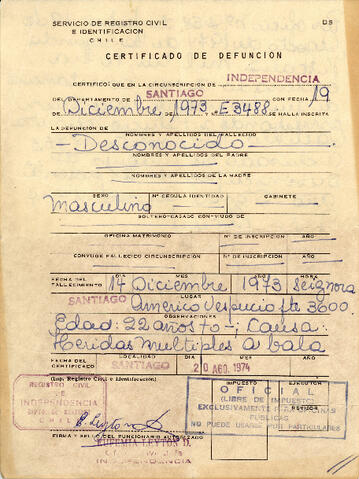 SERVICIO DE REGISTRO CIVIL
E IDENTIFICACION
CHILE
D8
CERTIFICADO DE DEFUNCION
CERTIFICO: QUE EN LA CIRCUNSCRIPCION DE INDEPENDENCIA
DEL DEPARTAMENTO DE SANTIAGO CON FECHA 19
DE Diciembre DE 1973 E3488 SE HALLA INSCRITA
LA DEFUNCION DE
NOMBRES Y APELLIDOS DEL FALLECIDO
-Desconocido-
NOMBRES Y APELLIDOS DEL PADRE
NOMBRES Y APELLIDOS DE LA MADRE
SEXO Nº CEDULA IDENTIDAD GABINETE
Masculino
SOLTERO-CASADO CON-VIUDO DE
OFICINA MATRIMONIO Nº DE INSCRIPCION AÑO
CONYUGE FALLECIDO CIRCUNSCRIPCION Nº DE INSCRIPCION AÑO
FECHA DEL FALLECIMIENTO DIA MES AÑO
14 Diciembre 1973 Seignora
LUGAR
SANTIAGO Americo Vespucio fte 3600
OBSERVACIONES
Edad: 22 años to-; Causa:
Heridas multiples a bala
FECHA DEL CERTIFICADO LOCALIDAD DIA MES AÑO
SANTIAGO 20 AGO. 1974
(Imp. Registro Civil e Identificación)
IMPUESTO EJECUTOR
REVISOR
REGISTRO CIVIL
INDEPENDENCIA
CHILE
OFICIAL
(LIBRE DE IMPUESTO)
EXCLUSIVAMENTE PARA OFICINAS
PUBLICAS
NO PUEDE USARSE POR PARTICULARES
E. Leyton D
FIRMA Y SELLO DEL FUNCIONARIO AUTORIZADO
EUFEMIA LEYTON D.
INDEPENDENCIA